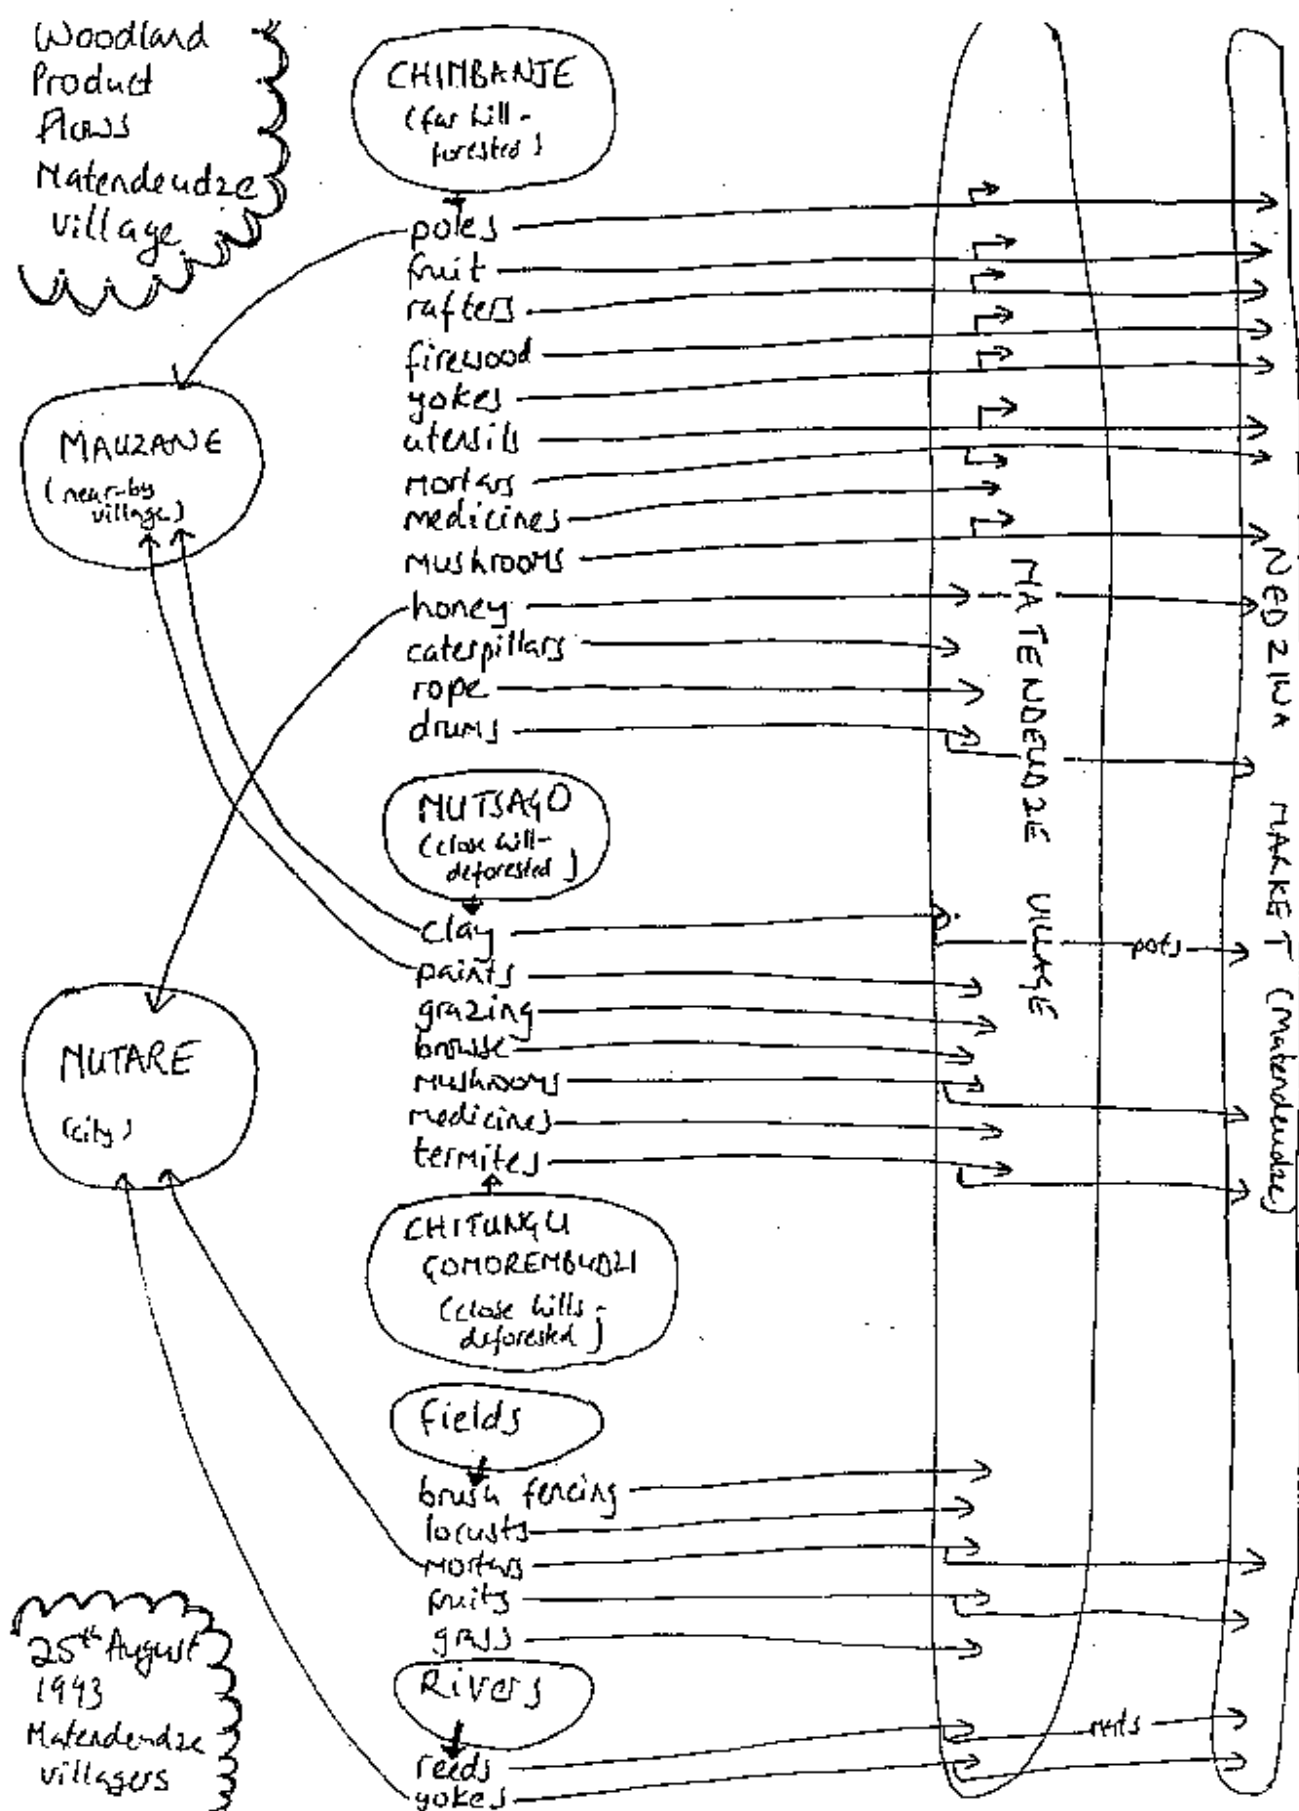 Woodland
Product
flows
Matendeudze
village
CHIMBANJE
(far hill-
forested)
poles
fruit
rafters
firewood
yokes
utensils
mortars
medicines
mushrooms
honey
caterpillars
rope
drums
MAUZANE
(near-by
village)
MUTSAGO
(close hill-
deforested)
clay
paints
grazing
browse
mushrooms
medicines
termites
MUTARE
(city)
CHITUNGU
GOMOREMBUDZI
(close hills-
deforested)
fields
brush fencing
locusts
mortars
fruits
grass
Rivers
reeds
yokes
MATENDEUDZE VILLAGE
pots
NEDZIWA MARKET (Matendeudze)
25th August
1993
Matendeudze
villagers